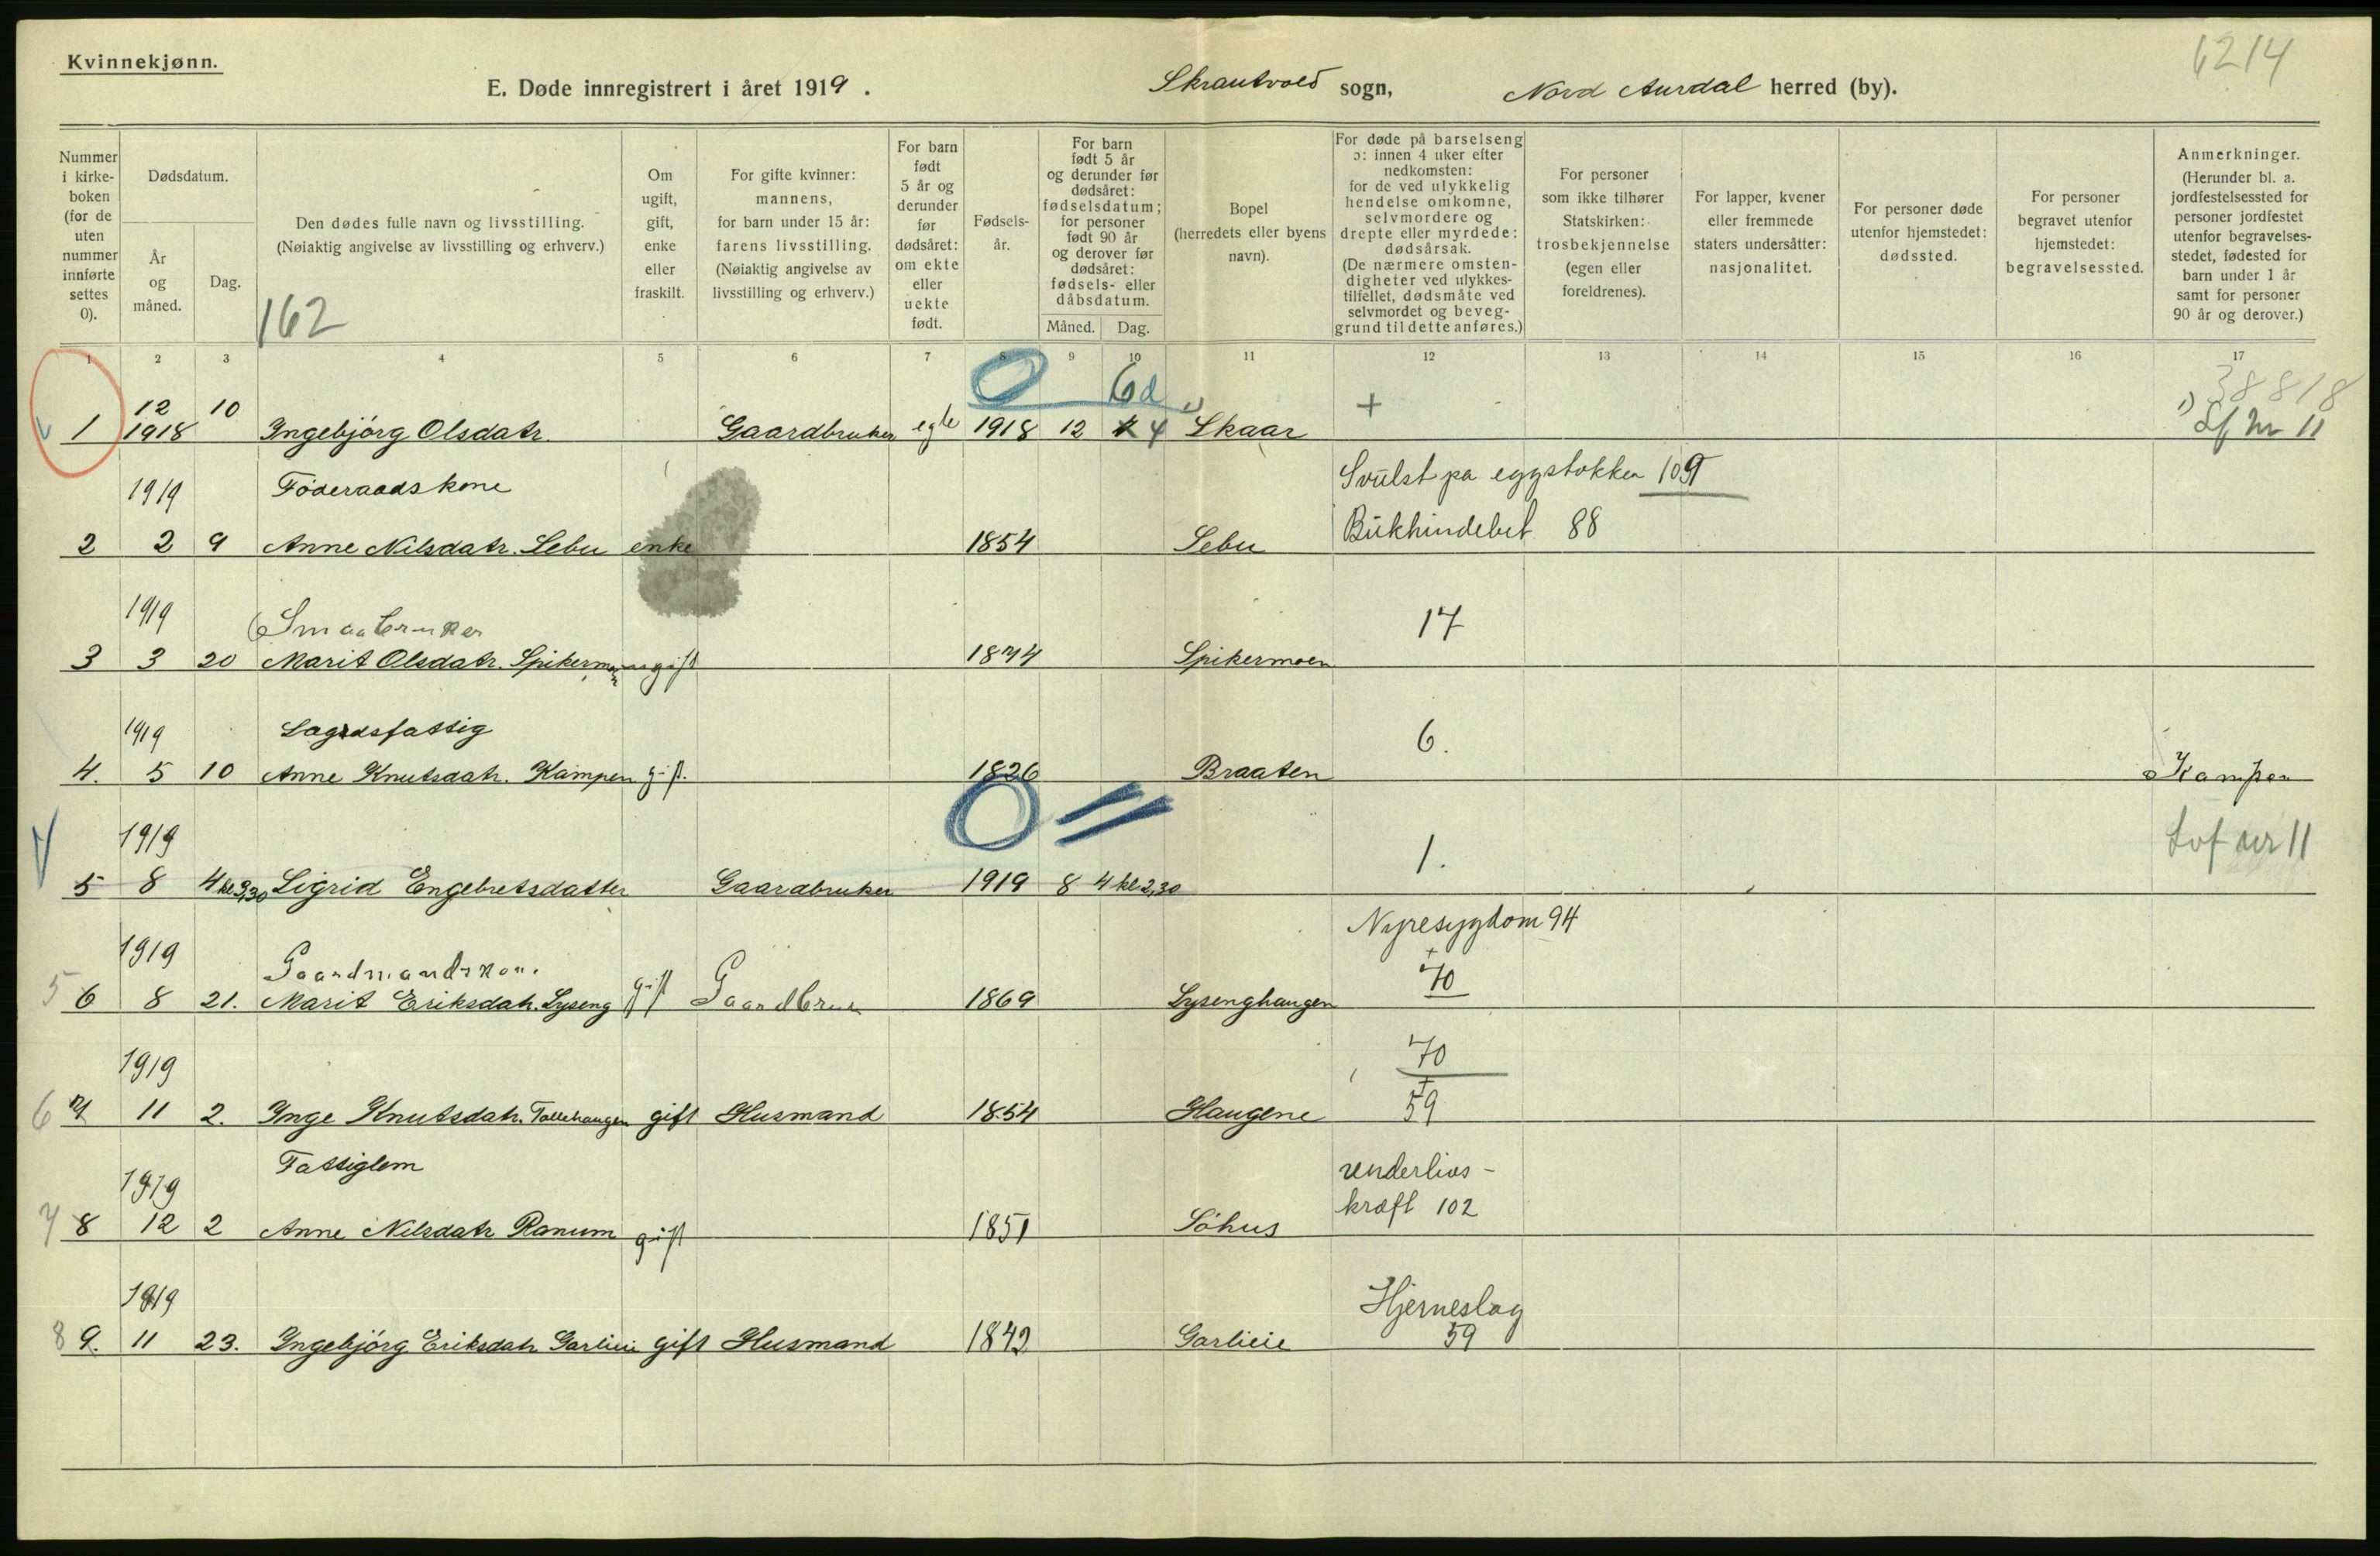 6214
Kvinnekjønn.
E. Døde innregistrert i året 1919. Skrautvold sogn, Nord Aurdal herred (by).
Nummer i kirkeboken (for de uten nummer innførte settes 0).
Dødsdatum.
År og måned.
Dag.
Den dødes fulle navn og livsstilling.
(Nøiaktig angivelse av livsstilling og erhverv.)
162
Om ugift, gift, enke eller fraskilt.
For gifte kvinner: mannens, for barn under 15 år: farens livsstilling.
(Nøiaktig angivelse av livsstilling og erhverv.)
For barn født 5 år og derunder før dødsåret: om ekte eller uekte født.
Fødselsår.
For barn født 5 år og derunder før dødsåret: fødselsdatum; for personer født 90 år og derover før dødsåret: fødsels- eller dåbsdatum.
Måned.
Dag.
Bopel (herredets eller byens navn).
For døde på barselseng ɔ: innen 4 uker efter nedkomsten: for de ved ulykkelig hendelse omkomne, selvmordere og drepte eller myrdede: dødsårsak.
(De nærmere omstendigheter ved ulykkestilfellet, dødsmåte ved selvmordet og beveggrund til dette anføres.)
For personer som ikke tilhører Statskirken: trosbekjennelse (egen eller foreldrenes).
For lapper, kvener eller fremmede staters undersåtter: nasjonalitet.
For personer døde utenfor hjemstedet: dødssted.
For personer begravet utenfor hjemstedet: begravelsessted.
Anmerkninger.
(Herunder bl. a. jordfestelsessted for personer jordfestet utenfor begravelsesstedet, fødested for barn under 1 år samt for personer 90 år og derover.)
1 2 3 4 5 6 7 8 9 10 11 12 13 14 15 16 17
0 6d 38818
12 10 + 1)
1 1918 Ingebjörg Olsdatr. Gaardbruker egte 1918 12 4 1) Skaar Lf nr 11
1919 Föderaadskone Svulst pa eggstokken 109
2 2 9 Anne Nilsdatr. Lebu enke 1854 Lebu Bukhindebet. 88
1919 Smaabruker 17
3 3 20 Marit Olsdatr. Spikermoen gift 1874 Spikermoen
1919 Lægdsfattig 6.
4. 5 10 Anne Knutsdatr. Kampen gift. 1826 Braaten Kampen
0 =
1919 1. Lvf nr 11
5 8 4 kl 3,30 Sigrid Engebretsdatter Gaardbruker 1919 8 4 kl 2,30
Nyresygdom 94
1919 Gaardmandskone + 70
5 6 8 21. Marit Eriksdatr. Lyseng gift Gaardbruker 1869 Lysenghaugen
1919 70 +
6 7 11 2. Inge Knutsdatr. Tollehaugen gift Husmand 1854 Haugene 59
1919 Fattiglem underlivs-
kræft 102
7 8 12 2 Anne Nilsdatr Ranum gift 1851 Söhus
1919 Hjerneslag
8 9. 11 23. Ingebjörg Eriksdatr Garlieie gift Husmand 1842 Garlieie 59